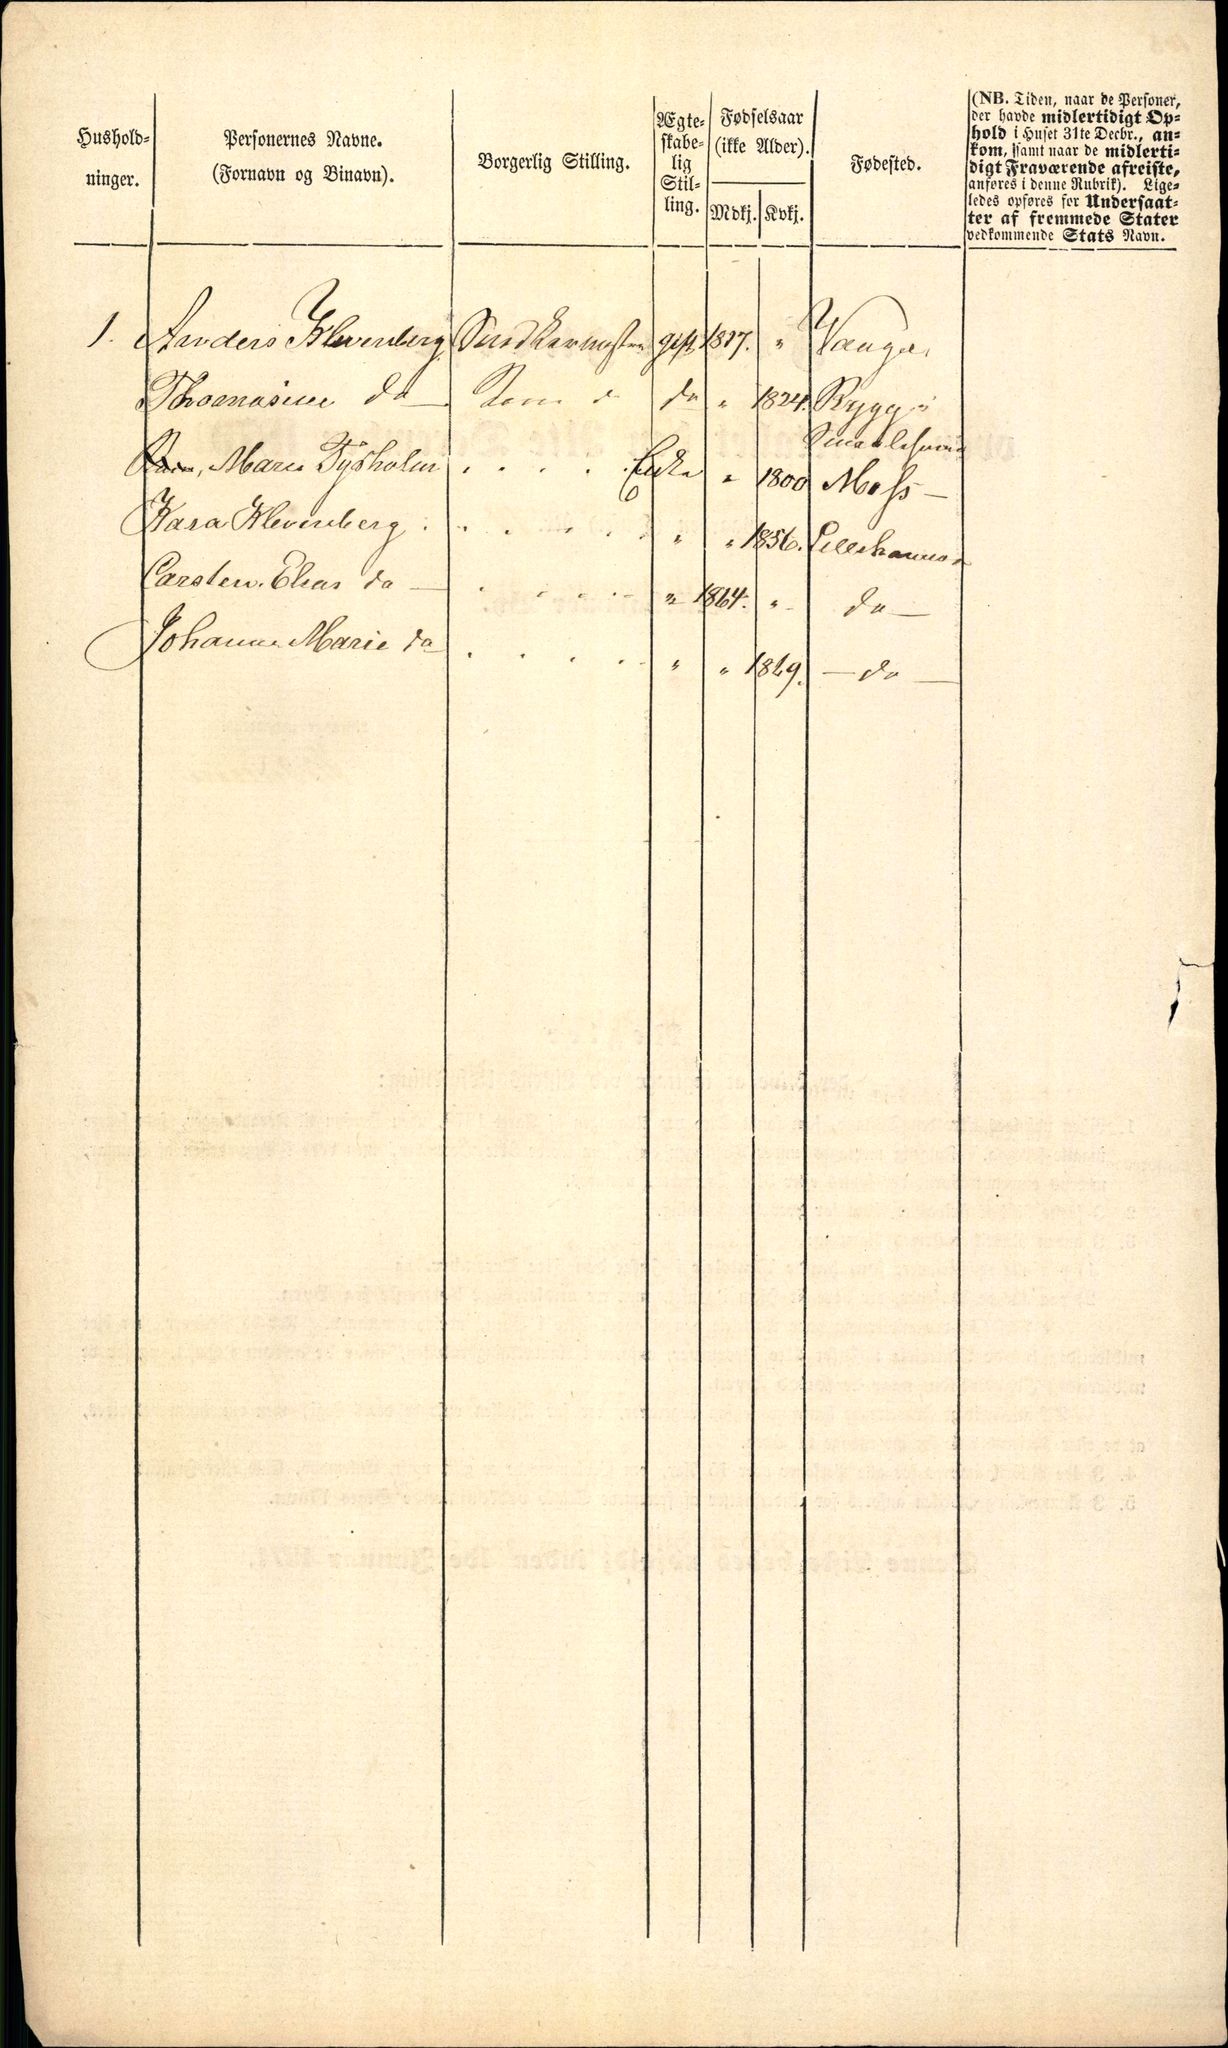 Hushold-
ninger.
Personernes Navne.
(Fornavn og Binavn).
Borgerlig Stilling.
Ægte-
skabe-
lig
Stil-
ling.
Fødselsaar
(ikke Alder).
Mdkj. Kvkj.
Fødested.
(NB. Tiden, naar de Personer,
der havde midlertidigt Op-
hold i Huset 31te Decbr., an-
kom, samt naar de midlerti-
digt Fraværende afreiste,
anføres i denne Rubrik). Lige-
ledes opføres for Undersaat-
ter af fremmede Stater
vedkommende Stats Navn.
1. Anders Klevenberg Snedkermester gift 1817. " Vang.
Thomasine do Kone do " 1824. Rygge
Smaalehnene
Marie Tysholm . . . . Enke " 1800 Moss —
Kara Klevenberg . . . . . " " 1856. Lillehammer
Carsten Elias do — . . . . . " 1864. " do —
Johanne Marie do . . . . . " " 1869. — do —